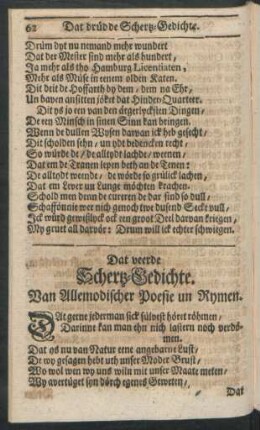 62 Dat drüdde Schertz-Gedichte.
Drüm dyt nu nemand mehr wundert
Dat der Meister sind mehr als hundert /
Ja mehr als tho Hamburg Licentiaten /
Mehr als Müse in enem olden Katen.
Dit deit de Hoffarth by dem / dem na Ehr /
Un baven ansitten jöket dat Hinder Quarteer.
Dit ys jo een van den ärgerlycksten Dingen /
De een Minsch in sinen Sinn kan bringen.
Wenn de dullen Wysen darvan ick heb gesecht /
Dit scholden sehn / un ydt bedencken recht /
So würde de / de alltydt lachde / weenen /
Dat em de Tranen lepen beth an de Tenen:
De alltydt weende / de wörde so grülick lachen /
Dat em Lever un Lunge möchten krachen.
Schold men denn de careren de dar sind so dull /
Schaffünnie wer nich genoch twe dusend Secke vull /
Ick würd gewißlyck ock een groot Deel darvan kriegen /
My gruet all darvör: Drum will ick echter schwiegen.
Dat veerde
Schertz-Gedichte.
Van Allemodischer Poesie un Rymen.
DAt geerne jederman sick sülvest höret röhmen /
Darinne kan man ehn nich lastern noch verdömen.
Dat ys nu van Natur eene angebarne Lust /
De wy gesagen hebt uth unser Moder Brust /
Wo wol wen wy uns wiln mit unser Maate meten /
Wy avertüget syn dörch egenes Geweten /
Dat